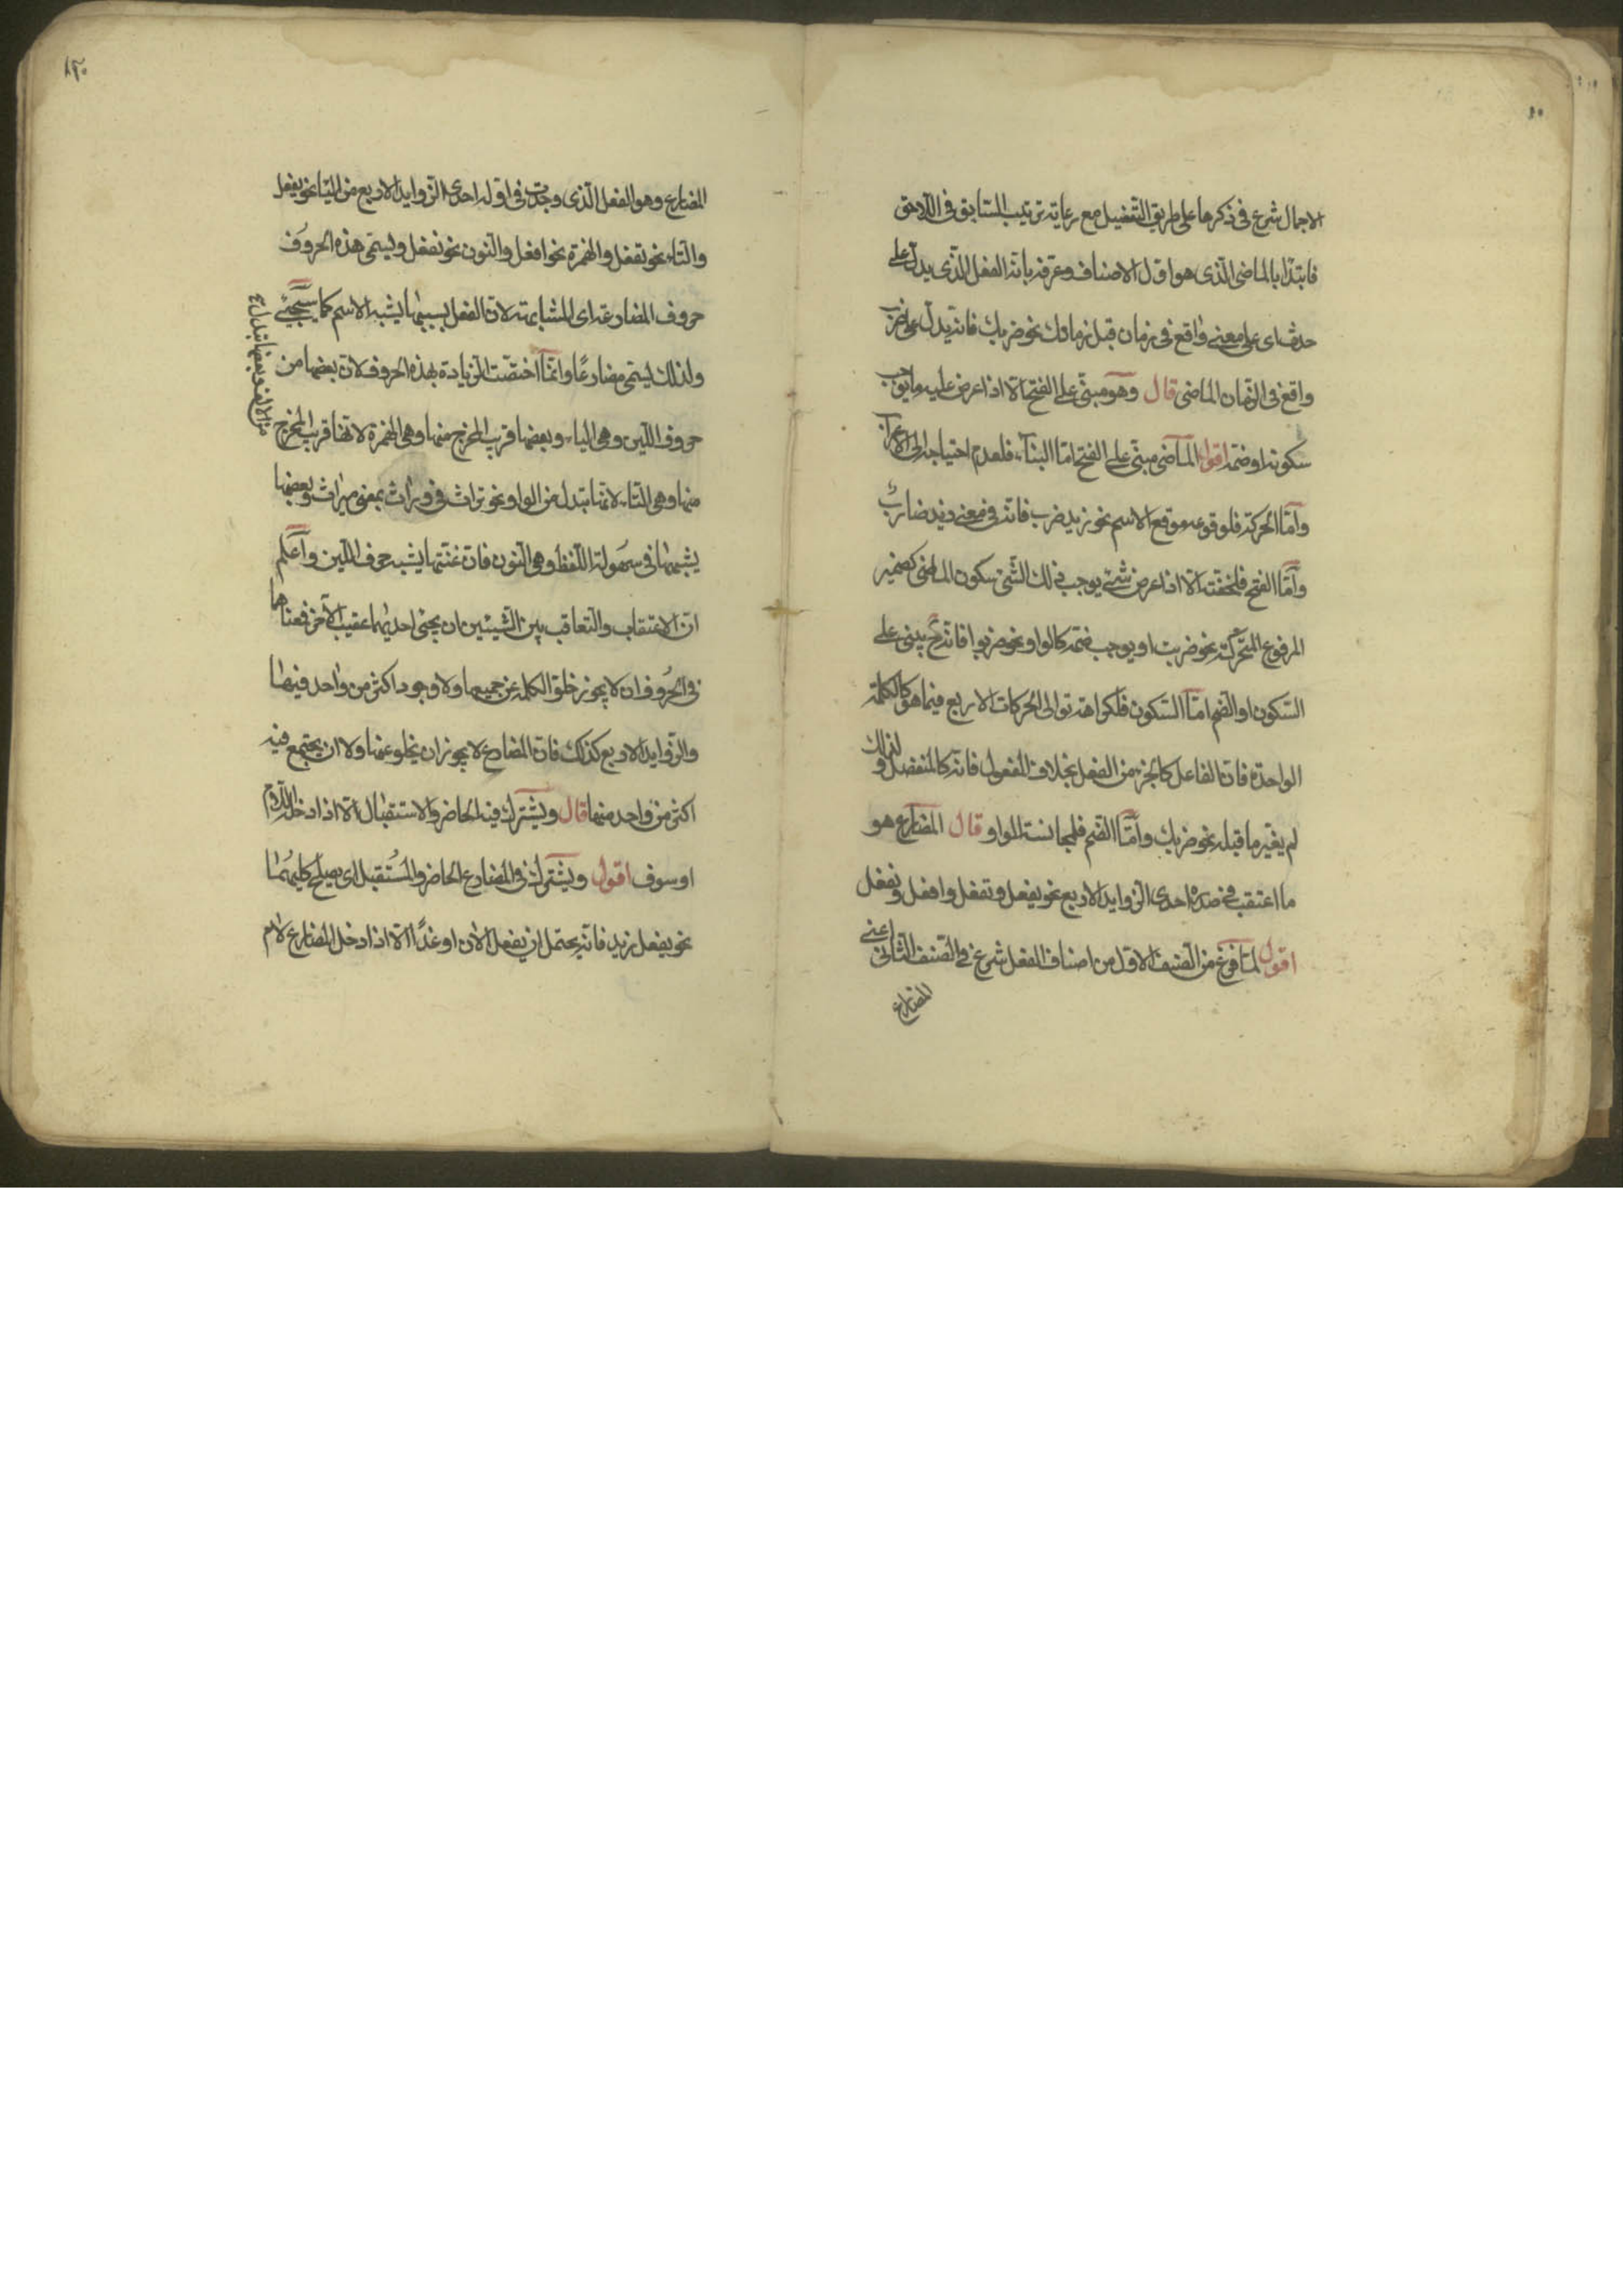 الاجمال شرع فى ذكرها على طريق التفضيل مع رعاية ترتيب السّابق فى اللاحق
فابتدأ بالماضى الّذى هو اوّل الاصناف وعرّفه بانّه الفعل الّذى يدلّ على
حدث اى على معنى واقع فى زمان قبل زمانك نحو ضربك فانّه يدلّ على ضرب
واقع فى الزّمان الماضى قال وهو مبنىّ على الفتح الّا اذا عرض عليه ما يوجب
سكونه او ضمّه اقول الماضى مبنىّ على الفتح امّا البناء فلعدم احتياجه الى الاعراب
وامّا الحركة فلوقوعه موقع الاسم نحو زيد ضرب فانّه فى معنى زيد ضارب
وامّا الفتح فلخفّته الّا اذا عرض شئ يوجب ذلك الشّئ سكون الماضى كضمير
المرفوع المتحرّكة نحو ضربت او يوجب ضمّه كالواو نحو ضربوا فانّه ح يبنى على
السّكون او الضّم امّا السّكون فلكراهة توالى الحركات الاربع فيما هو كالكلمة
الواحدة فانّ الفاعل كالجزء من الفعل بخلاف المفعول فانّه كالمنفصل ولذلك
لم يغيّر ما قبله نحو ضربك وامّا الضّم فلمجانسة الواو قال المضارع هو
ما اعتقب فى صدره احدى الزوايد الاربع نحو يفعل وتفعل وافعل ونفعل
اقول لمّا فرغ من الصّنف الاوّل من اصناف الفعل شرع فى الصّنف الثّانى اعنى
المضارع
١٢٠
المضارع وهو الفعل الّذى وجدت فى اوّله احدى الزوايد الاربع من اليا نحو يفعل
والتاء نحو تفعل والهمزة نحو افعل والنّون نحو نفعل ويسمّى هذه الحروف
حروف المضارعة اى المشابهة لانّ الفعل بسببها يشبه الاسم كما سيجئ
ولذلك يسمّى مضارعًا وانّما اختصّت الزيادة بهذه الحروف لانّ بعضها من
حروف اللّين وهى الياء وبعضها قريب المخرج منها وهى الهمزة لانها قريب المخرج
من الالف وبعضها تبدل
منها وهى التاء لانّها تبدل من الواو نحو تراث فى وراث بمعنى ميراث وبعضها
يشبهها فى سهولة اللّفظ وهى النّون فانّ غنّتها يشبه حرف اللّين واعلم
انّ الاعتقاب والتعاقب بين الشّيئين ان يجئ احديهما عقيب الآخر فمعناهما
فى الحروف ان لا يجوز خلوّ الكلمة عن جميعها ولا وجود اكثر من واحد فيها
والزوايد الاربع كذلك فانّ المضارع لا يجوز ان يخلو عنها ولا ان يجتمع فيه
اكثر من واحد منها قال ويشترك فيه الحاضر والاستقبال الّا اذا دخل اللّام
او سوف اقول ويشترك فى المضارع الحاضر والمستقبل اى يصلح كليهما
نحو يفعل زيد فانّه يحتمل ان يفعل الان او غدًا الّا اذا دخل المضارع لام